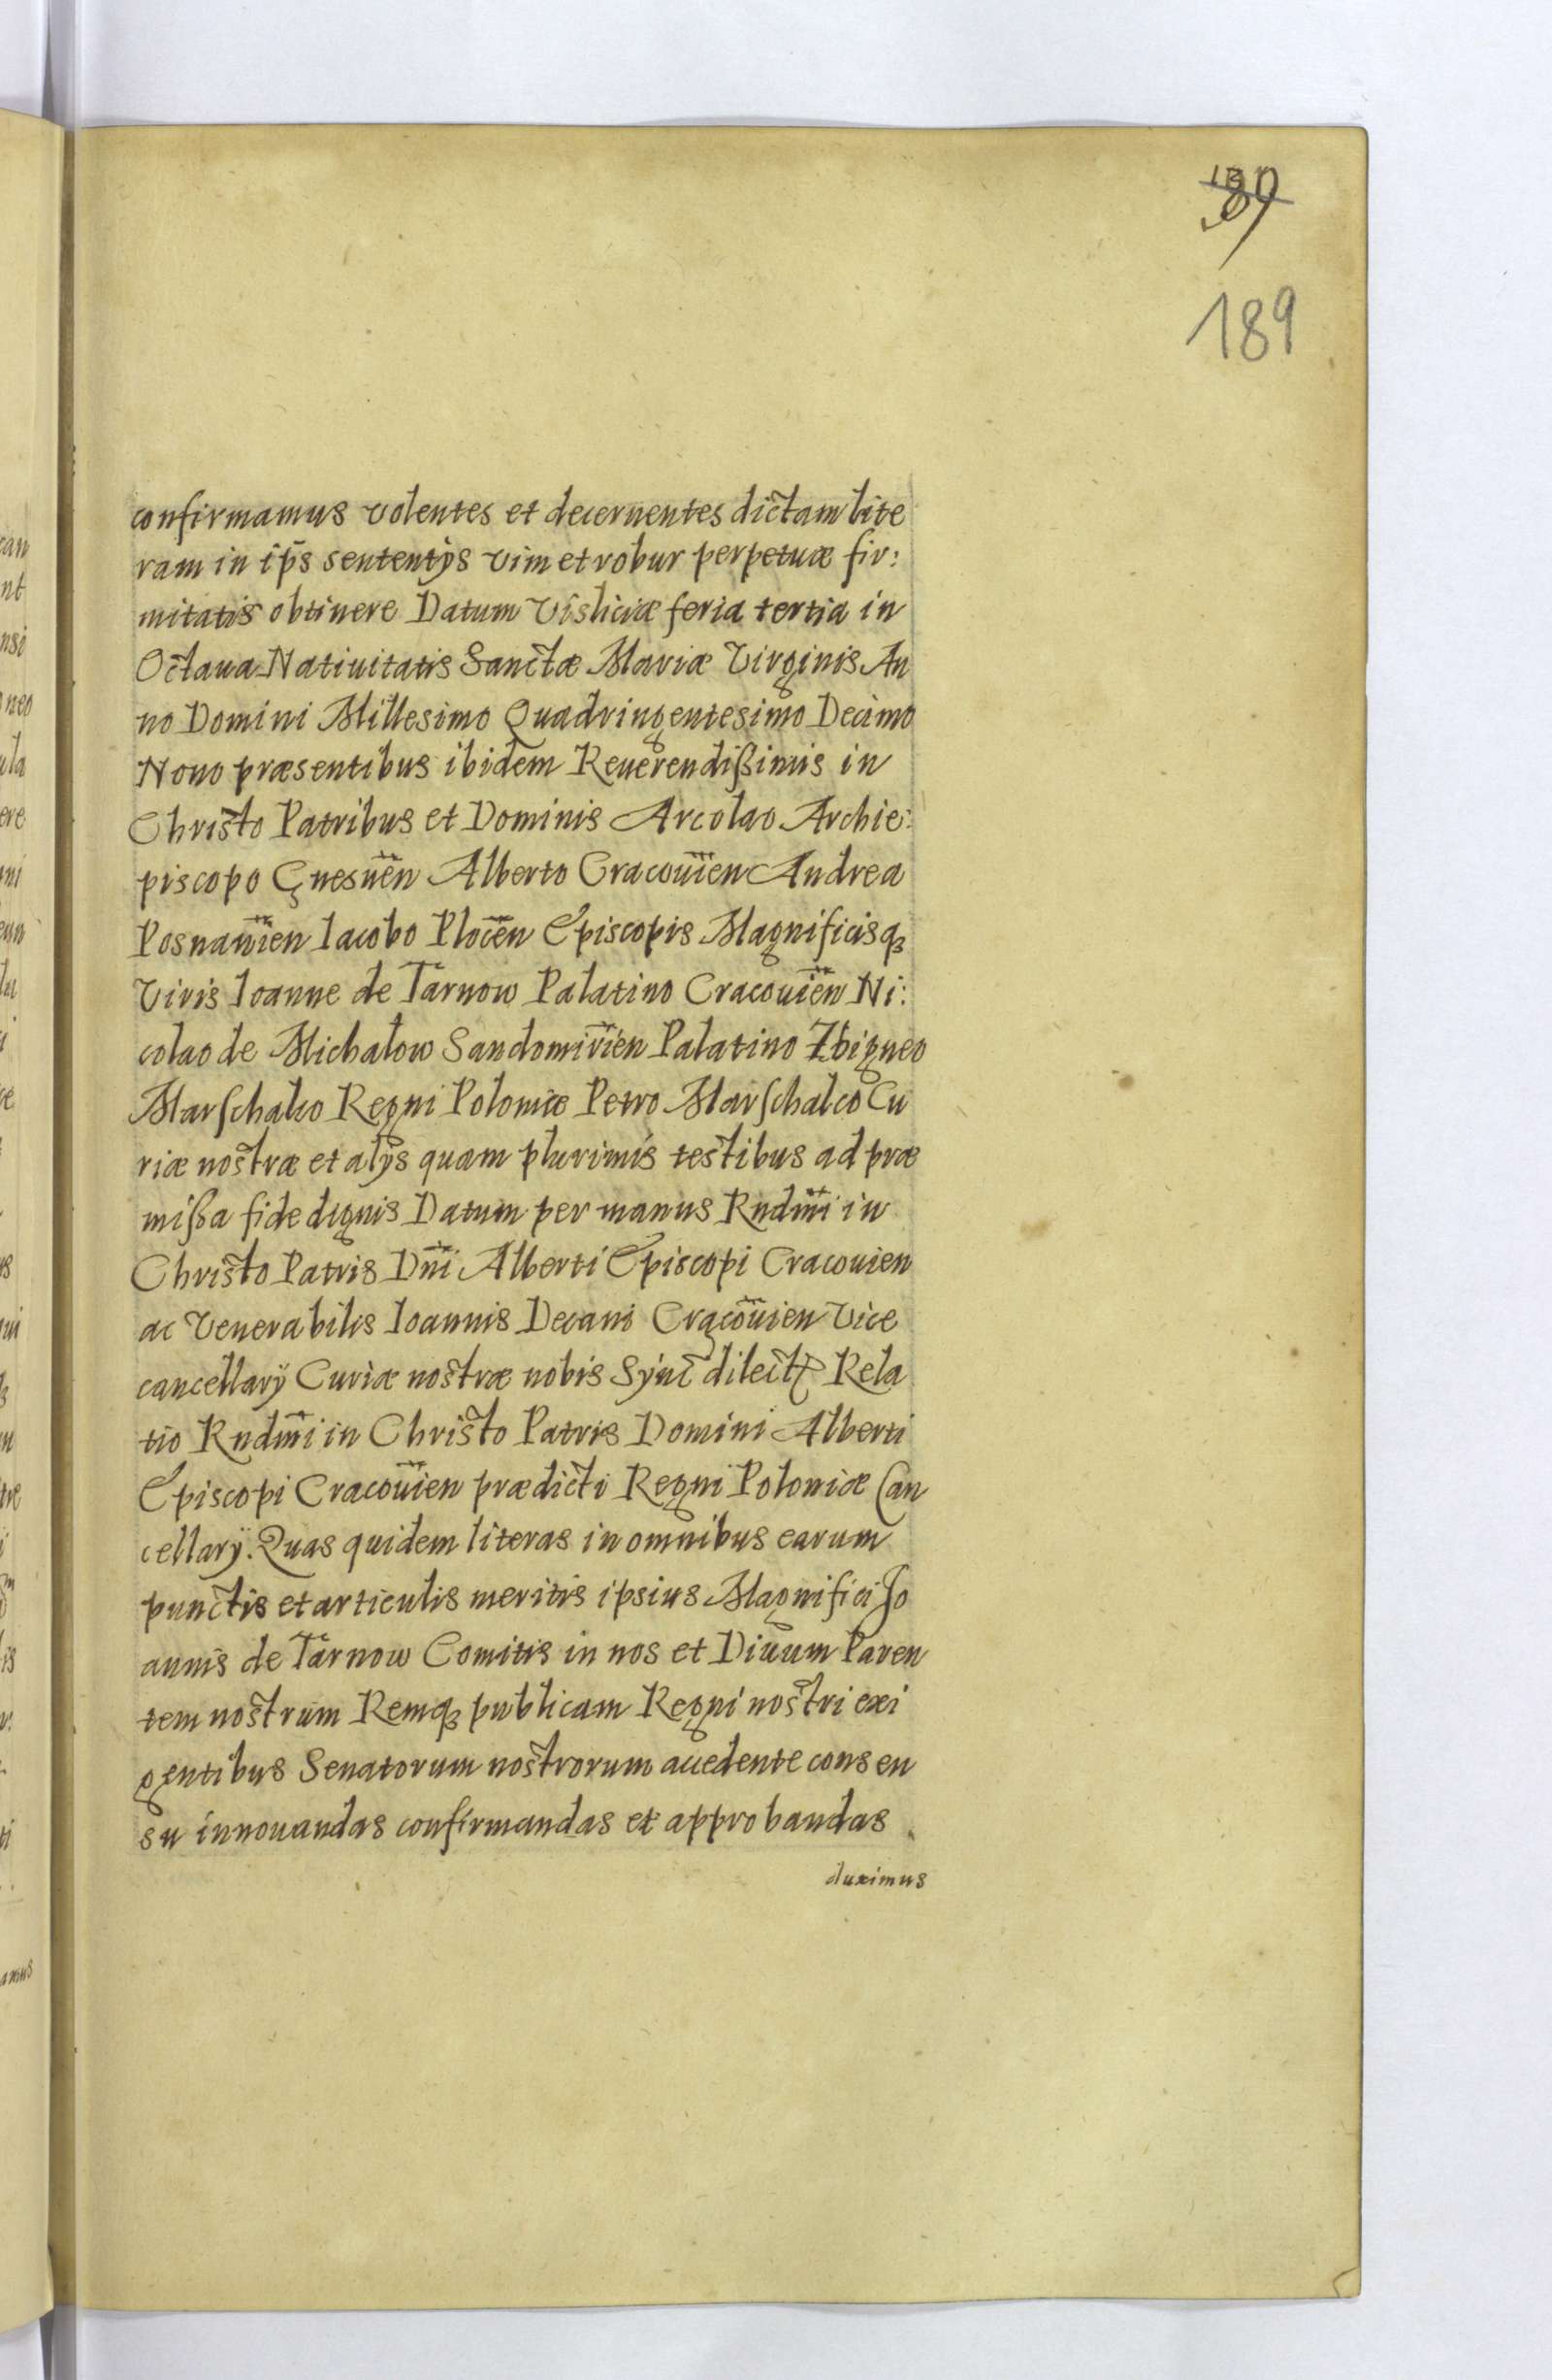 189
confirmamus volentes et decernentes dictam lite
ram in ip̄s sententÿs vim et robur perpetuæ fir:
mitatis obtinere Datum Visliciæ feria tertia in
Octaua Natiuitatis Sanctæ Mariæ Virginis An
no Domini Millesimo Quadringentesimo Decimo
Nono præsentibus ibidem Reuerendißimis in
Christo Patribus et Dominis Arcolao Archie:
piscopo Gnesnēn Alberto Cracouīen Andrea
Posnanīen Iacobo Plocēn Episcopis Magnificisq̨
Viris Ioanne de Tarnow Palatino Cracouiēn Ni:
colao de Michalow Sandomirīen Palatino Zbigneo
Marschalco Regni Poloniæ Petro Marschalco Cu
riæ nostræ et alÿs quam plurimis testibus ad præ
mißa fide dignis Datum per manus Rndm̄i in
Christo Patris Dn̄i Alberti Episcopi Cracouien
ac Venerabilis Ioannis Decani Cracoūien Vice
cancellarÿ Curiæ nostræ nobis Rela
tio Rndm̄i in Christo Patris Domini Alberti
Episcopi Cracoūien prædicti Regni Poloniæ Can
cellarÿ. Quas quidem literas in omnibus earum
punctis et articulis meritis ipsius Magnifici Jo
annis de Tarnow Comitis in nos et Diuum Paren
tem nostrum Remq̨ publicam Regni nostri exi
gentibus Senatorum nostrorum accedente consen
su innouandas confirmandas et approbandas
duximus